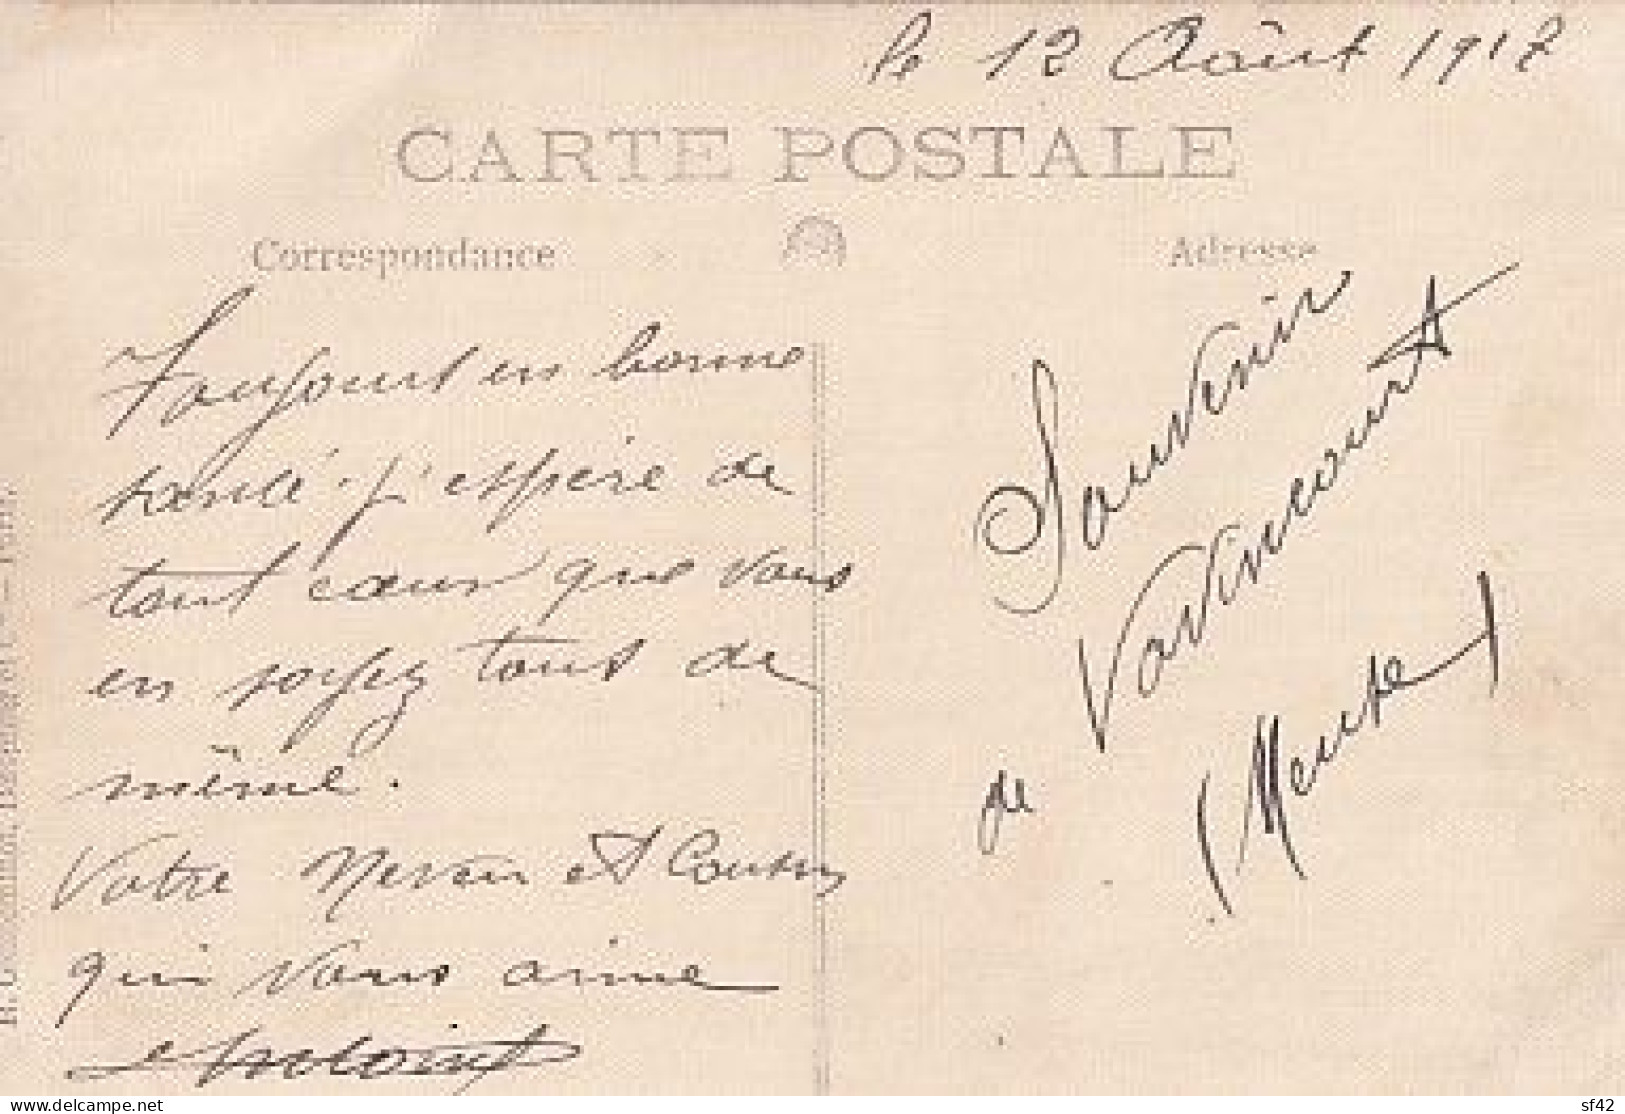 le 12 Août 1917
CARTE POSTALE
Correspondance
Adresse
Toujours en bonne
santé. J'espère de
tout cœur que vous
en soyez tous de
même.
Votre Neveu et Cousin
qui vous aime
Antoine
Souvenir
de Vavincourt
(Meuse)
delcampe.net
sf42